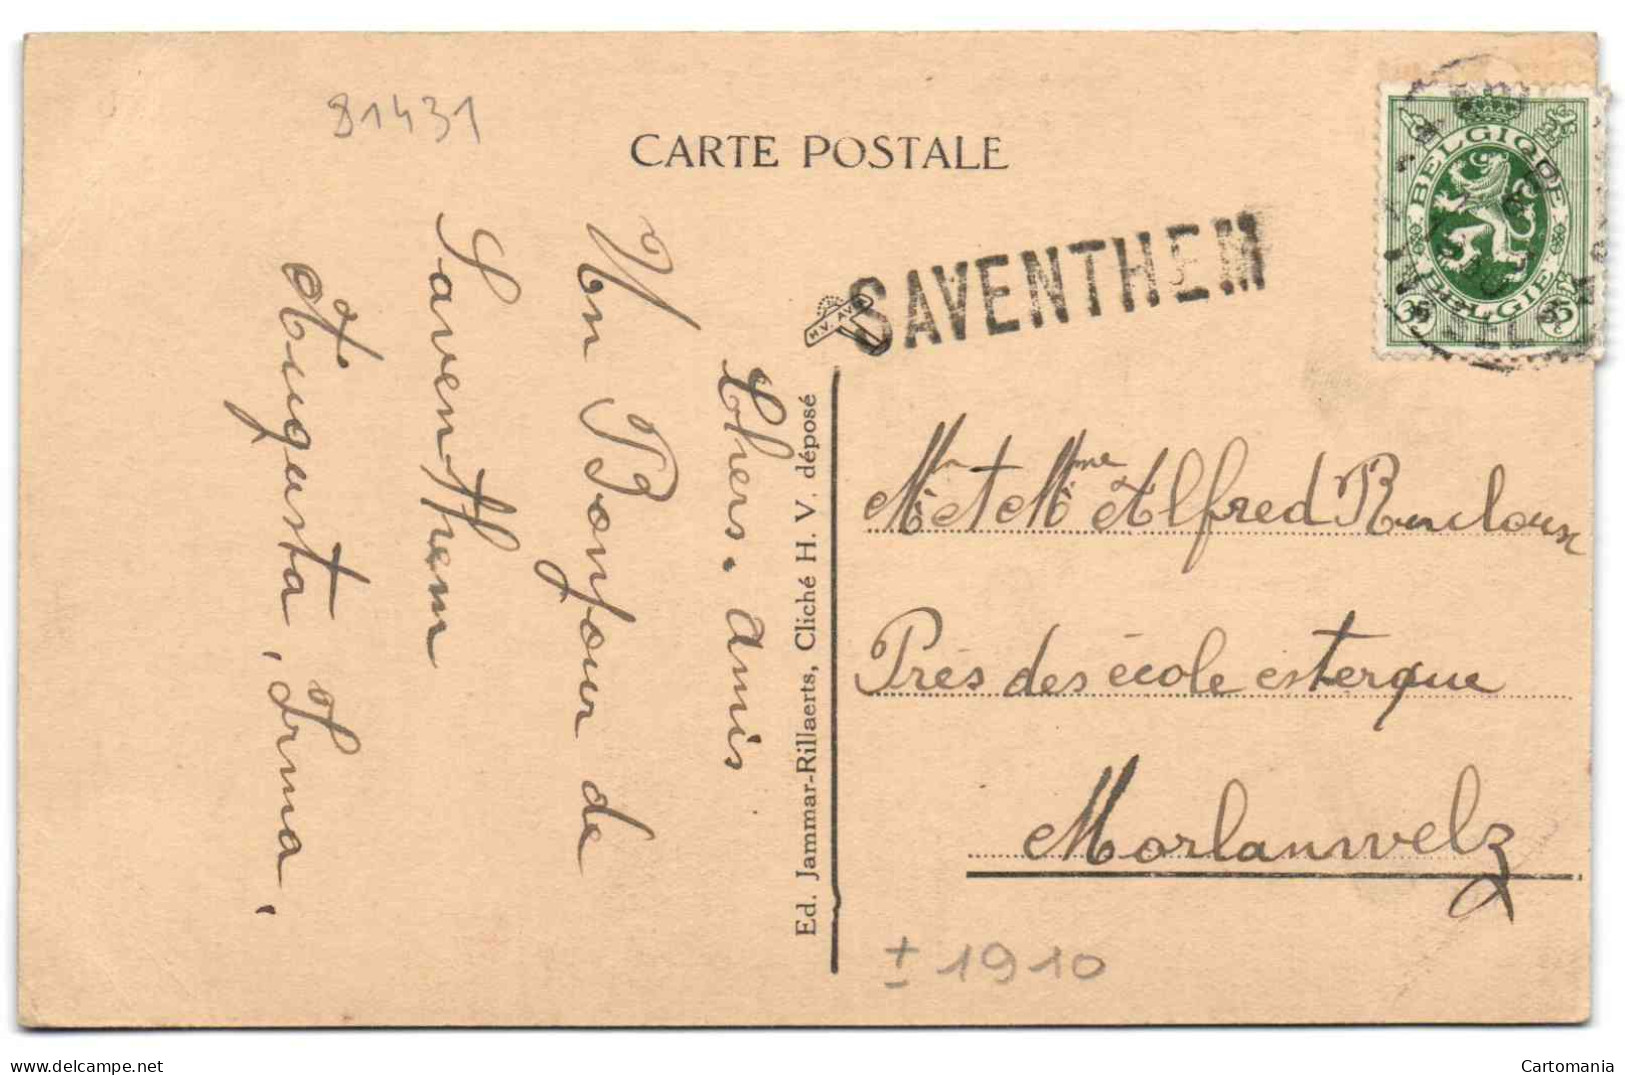 81431
CARTE POSTALE
SAVENTHEM
H.V. AV
BELGIQUE
BELGIE
35 35
Chers. Amis
Un Bonjour de
Saventhem
Augusta, Irma,
Ed. Jammar-Rillaerts, Cliché H. V. déposé
Mr et Mme Alfred
Près des école esterque
Morlanwelz
± 1910
Cartomania